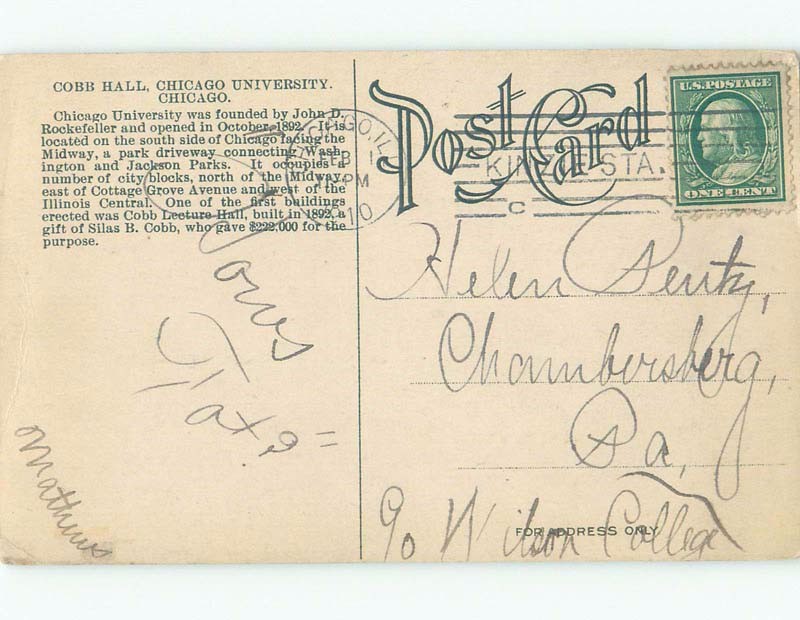 COBB HALL, CHICAGO UNIVERSITY.
CHICAGO.
Chicago University was founded by John D.
Rockefeller and opened in October, 1892. It is
located on the south side of Chicago facing the
Midway, a park driveway connecting Wash-
ington and Jackson Parks. It occupies a
number of city blocks, north of the Midway,
east of Cottage Grove Avenue and west of the
Illinois Central. One of the first buildings
erected was Cobb Lecture Hall, built in 1892, a
gift of Silas B. Cobb, who gave $222,000 for the
purpose.
Yours
Mathews
Post Card
GO, ILL
FEB 1
PM
10
KINZIE STA.
C
U.S. POSTAGE
ONE CENT
Helen Pentz,
Chambersburg,
Pa,
FOR ADDRESS ONLY
c/o Wilson College